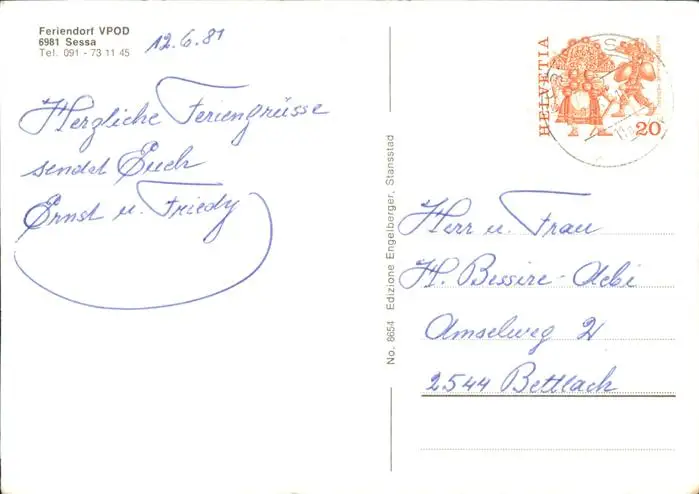 Feriendorf VPOD
6981 Sessa
Tel. 091 - 73 11 45
12.6.81
Herzliche Feriengrüsse
sendet Euch
Ernst u. Friedy
No. 8654 Edizione Engelberger, Stansstad
HELVETIA
20
Herr u. Frau
H. Bessire-Aebi
Amselweg 2
2544 Bettlach